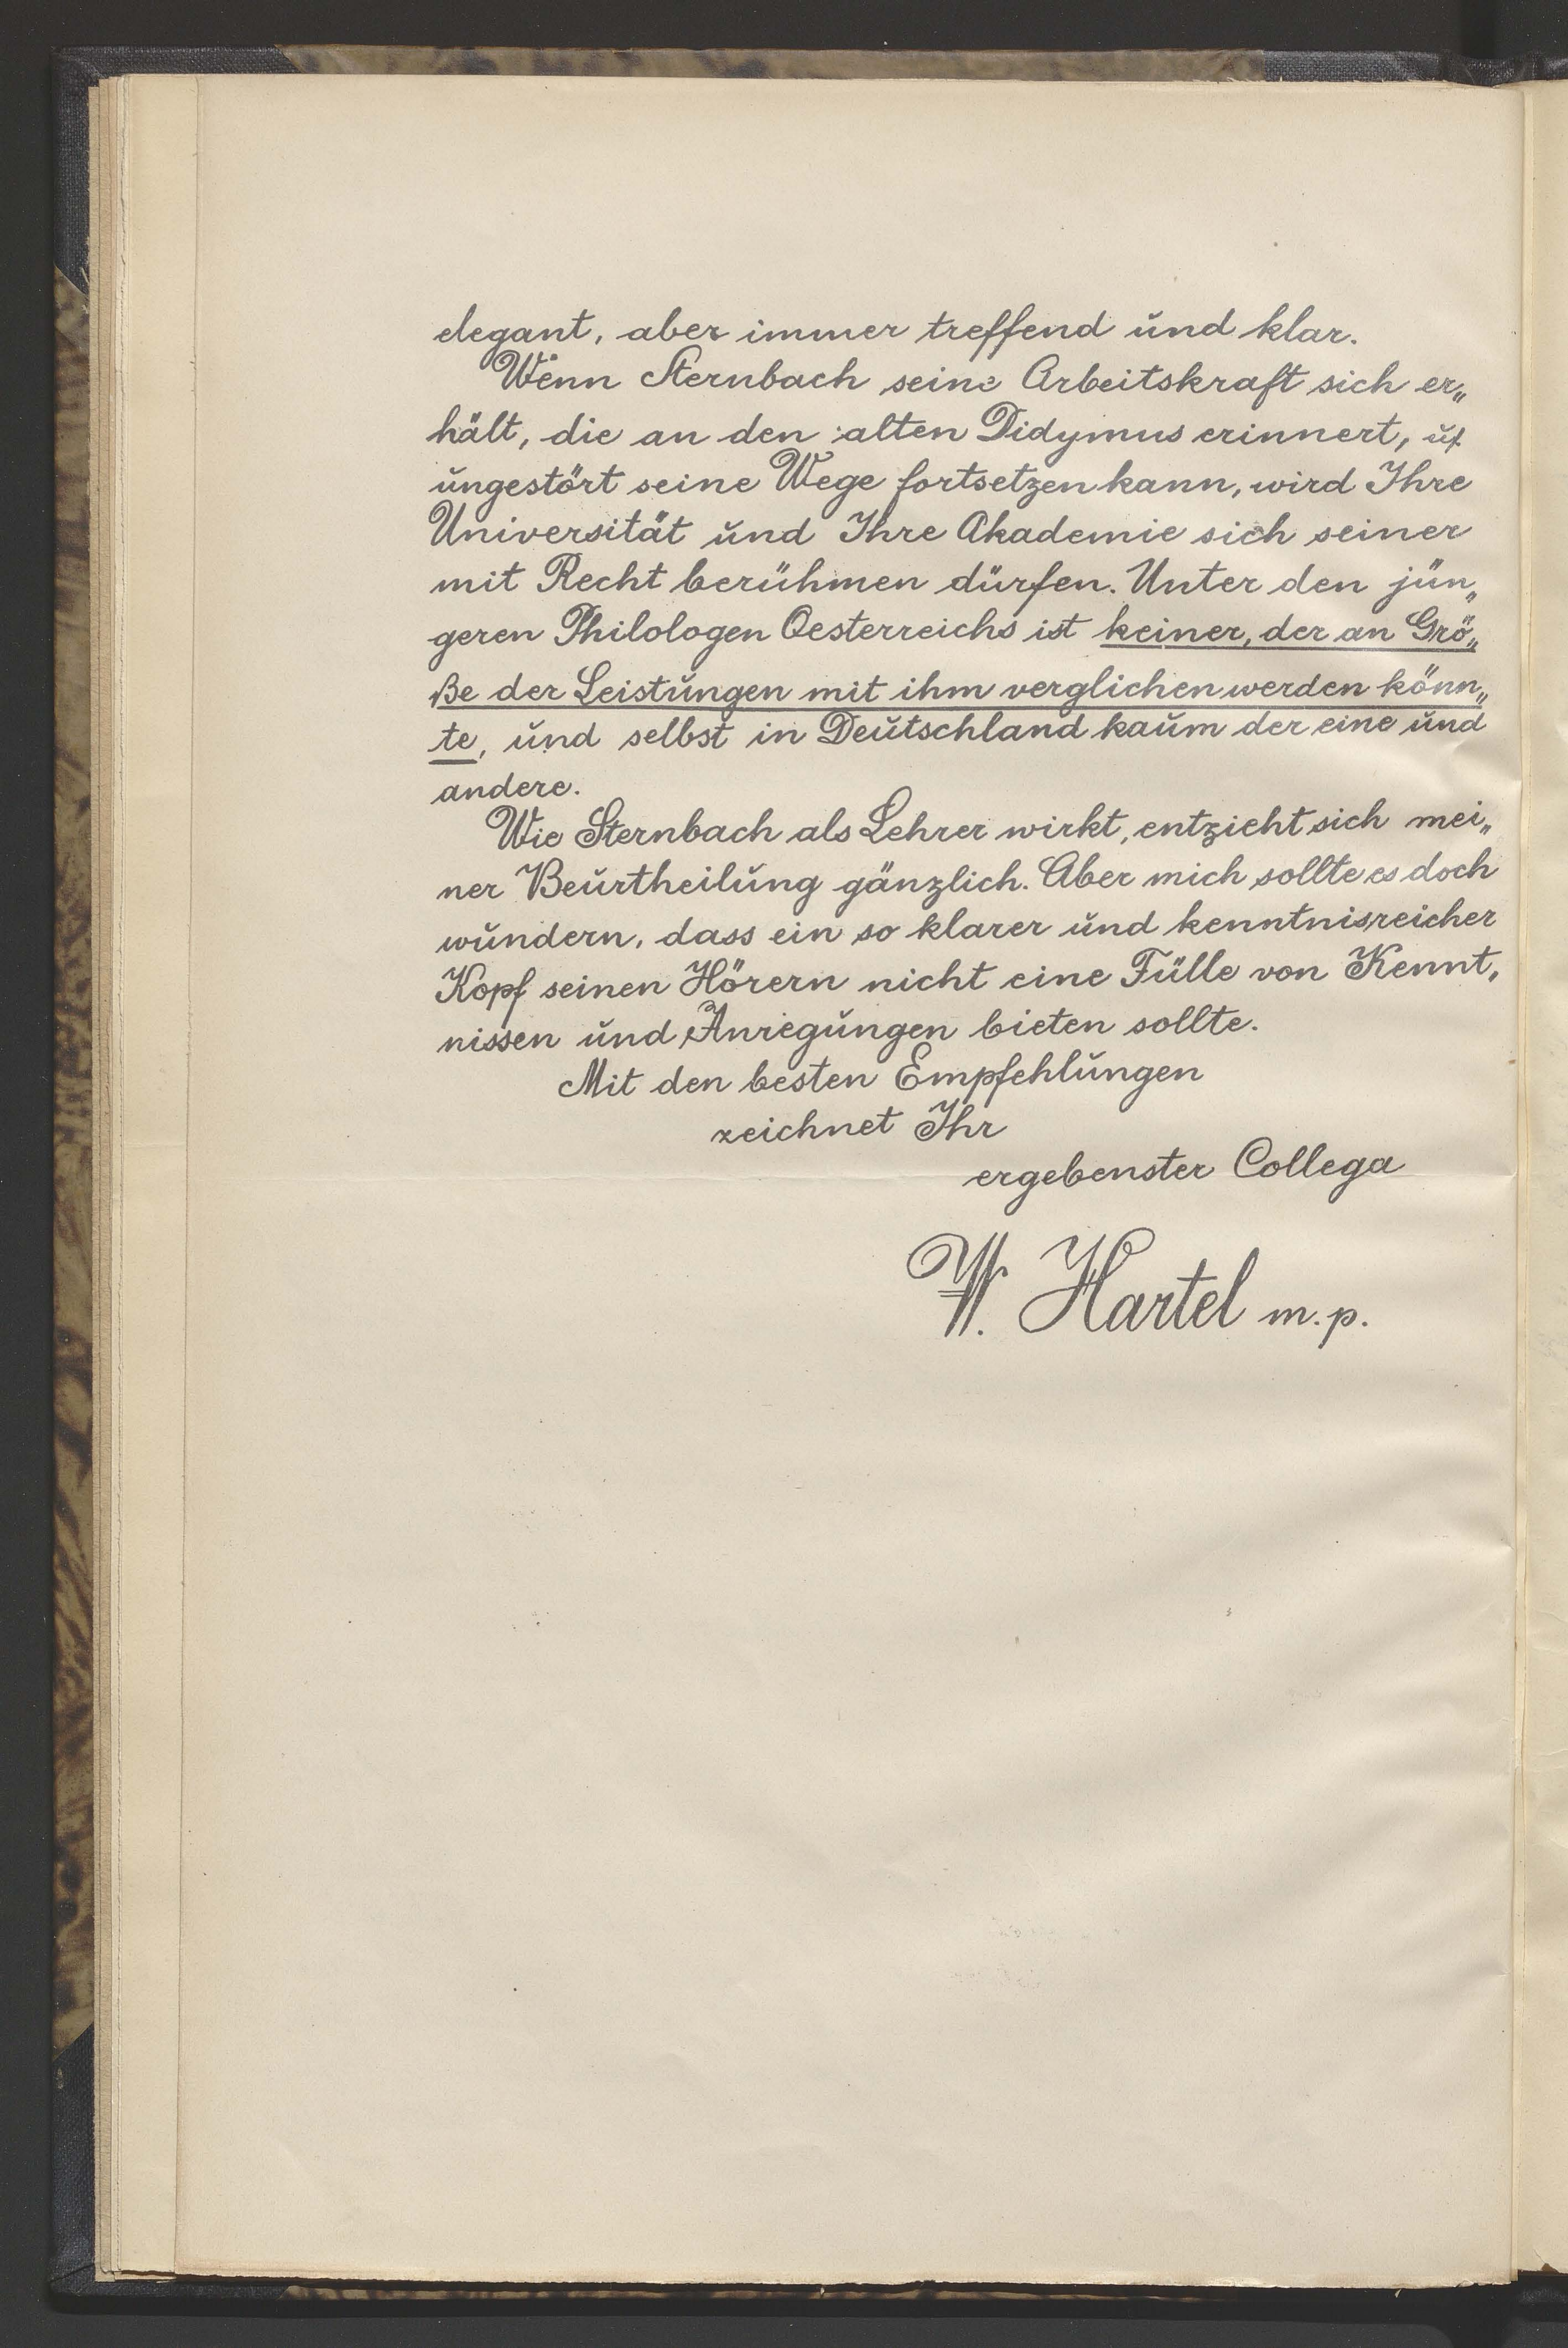 elegant, aber immer treffend und klar.
Wenn Sternbach seine Arbeitskraft sich er„
hält, die an den alten Didymus erinnert, u.
ungestört seine Wege fortsetzen kann, wird Ihre
Universität und Ihre Akademie sich seiner
mit Recht berühmen dürfen. Unter den jün„
geren Philologen Oesterreichs ist keiner, der an Grö„
ße der Leistungen mit ihm verglichen werden könn„
te, und selbst in Deutschland kaum der eine und
andere.
Wie Sternbach als Lehrer wirkt, entzieht sich mei„
ner Beurtheilung gänzlich. Aber mich sollte es doch
wundern, dass ein so klarer und kenntnisreicher
Kopf seinen Hörern nicht eine Fülle von Kennt„
nissen und Anregungen bieten sollte.
Mit den besten Empfehlungen
zeichnet Ihr
ergebenster Collega
W. Hartel m.p.